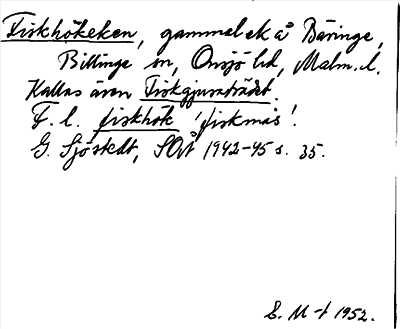 Fiskhökeken, gammal ek å Bäringe,
Billinge sn, Onsjö hd, Malm. l.
Kallas även Fiskgjuseträdet.
F. l. fiskhök 'fiskmås'.
G. Sjöstedt, SOÅ 1942-45 s. 35.
1952.